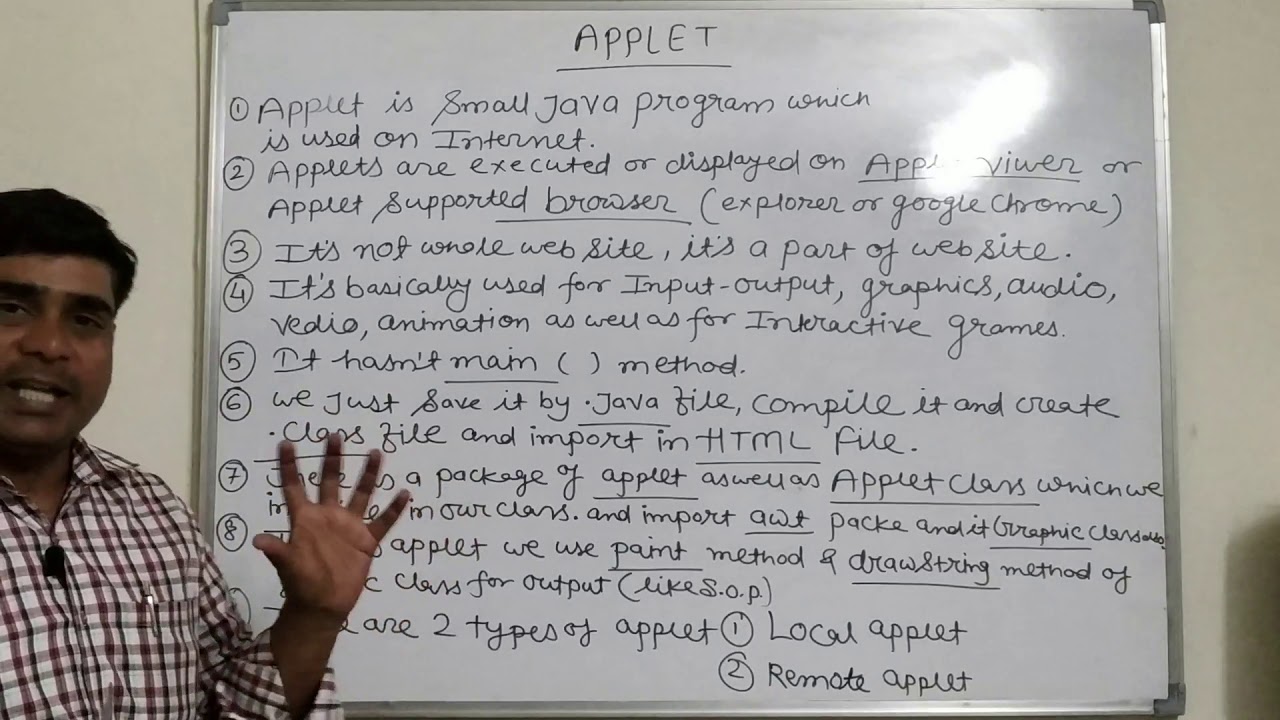 APPLET
① Applet is small Java program which
is used on Internet.
② Applets are executed or displayed on viwer or
Applet supported browser (explorer or google chrome)
③ It's not whole web site, it's a part of web site.
④ It's basically used for Input-output, graphics, audio,
Vedio, animation as well as for Interactive grames.
⑤ It hasn't main ( ) method.
⑥ we just save it by .Java file, compile it and create
.class file and import in HTML file.
⑦ a package of applet aswell as Applet class which we
in our class. and import awt packa and it Graphic class
⑧ applet we use paint method & drawstring method of
class for output (like S.o.p.)
are 2 types of applet ① Local applet
② Remote applet